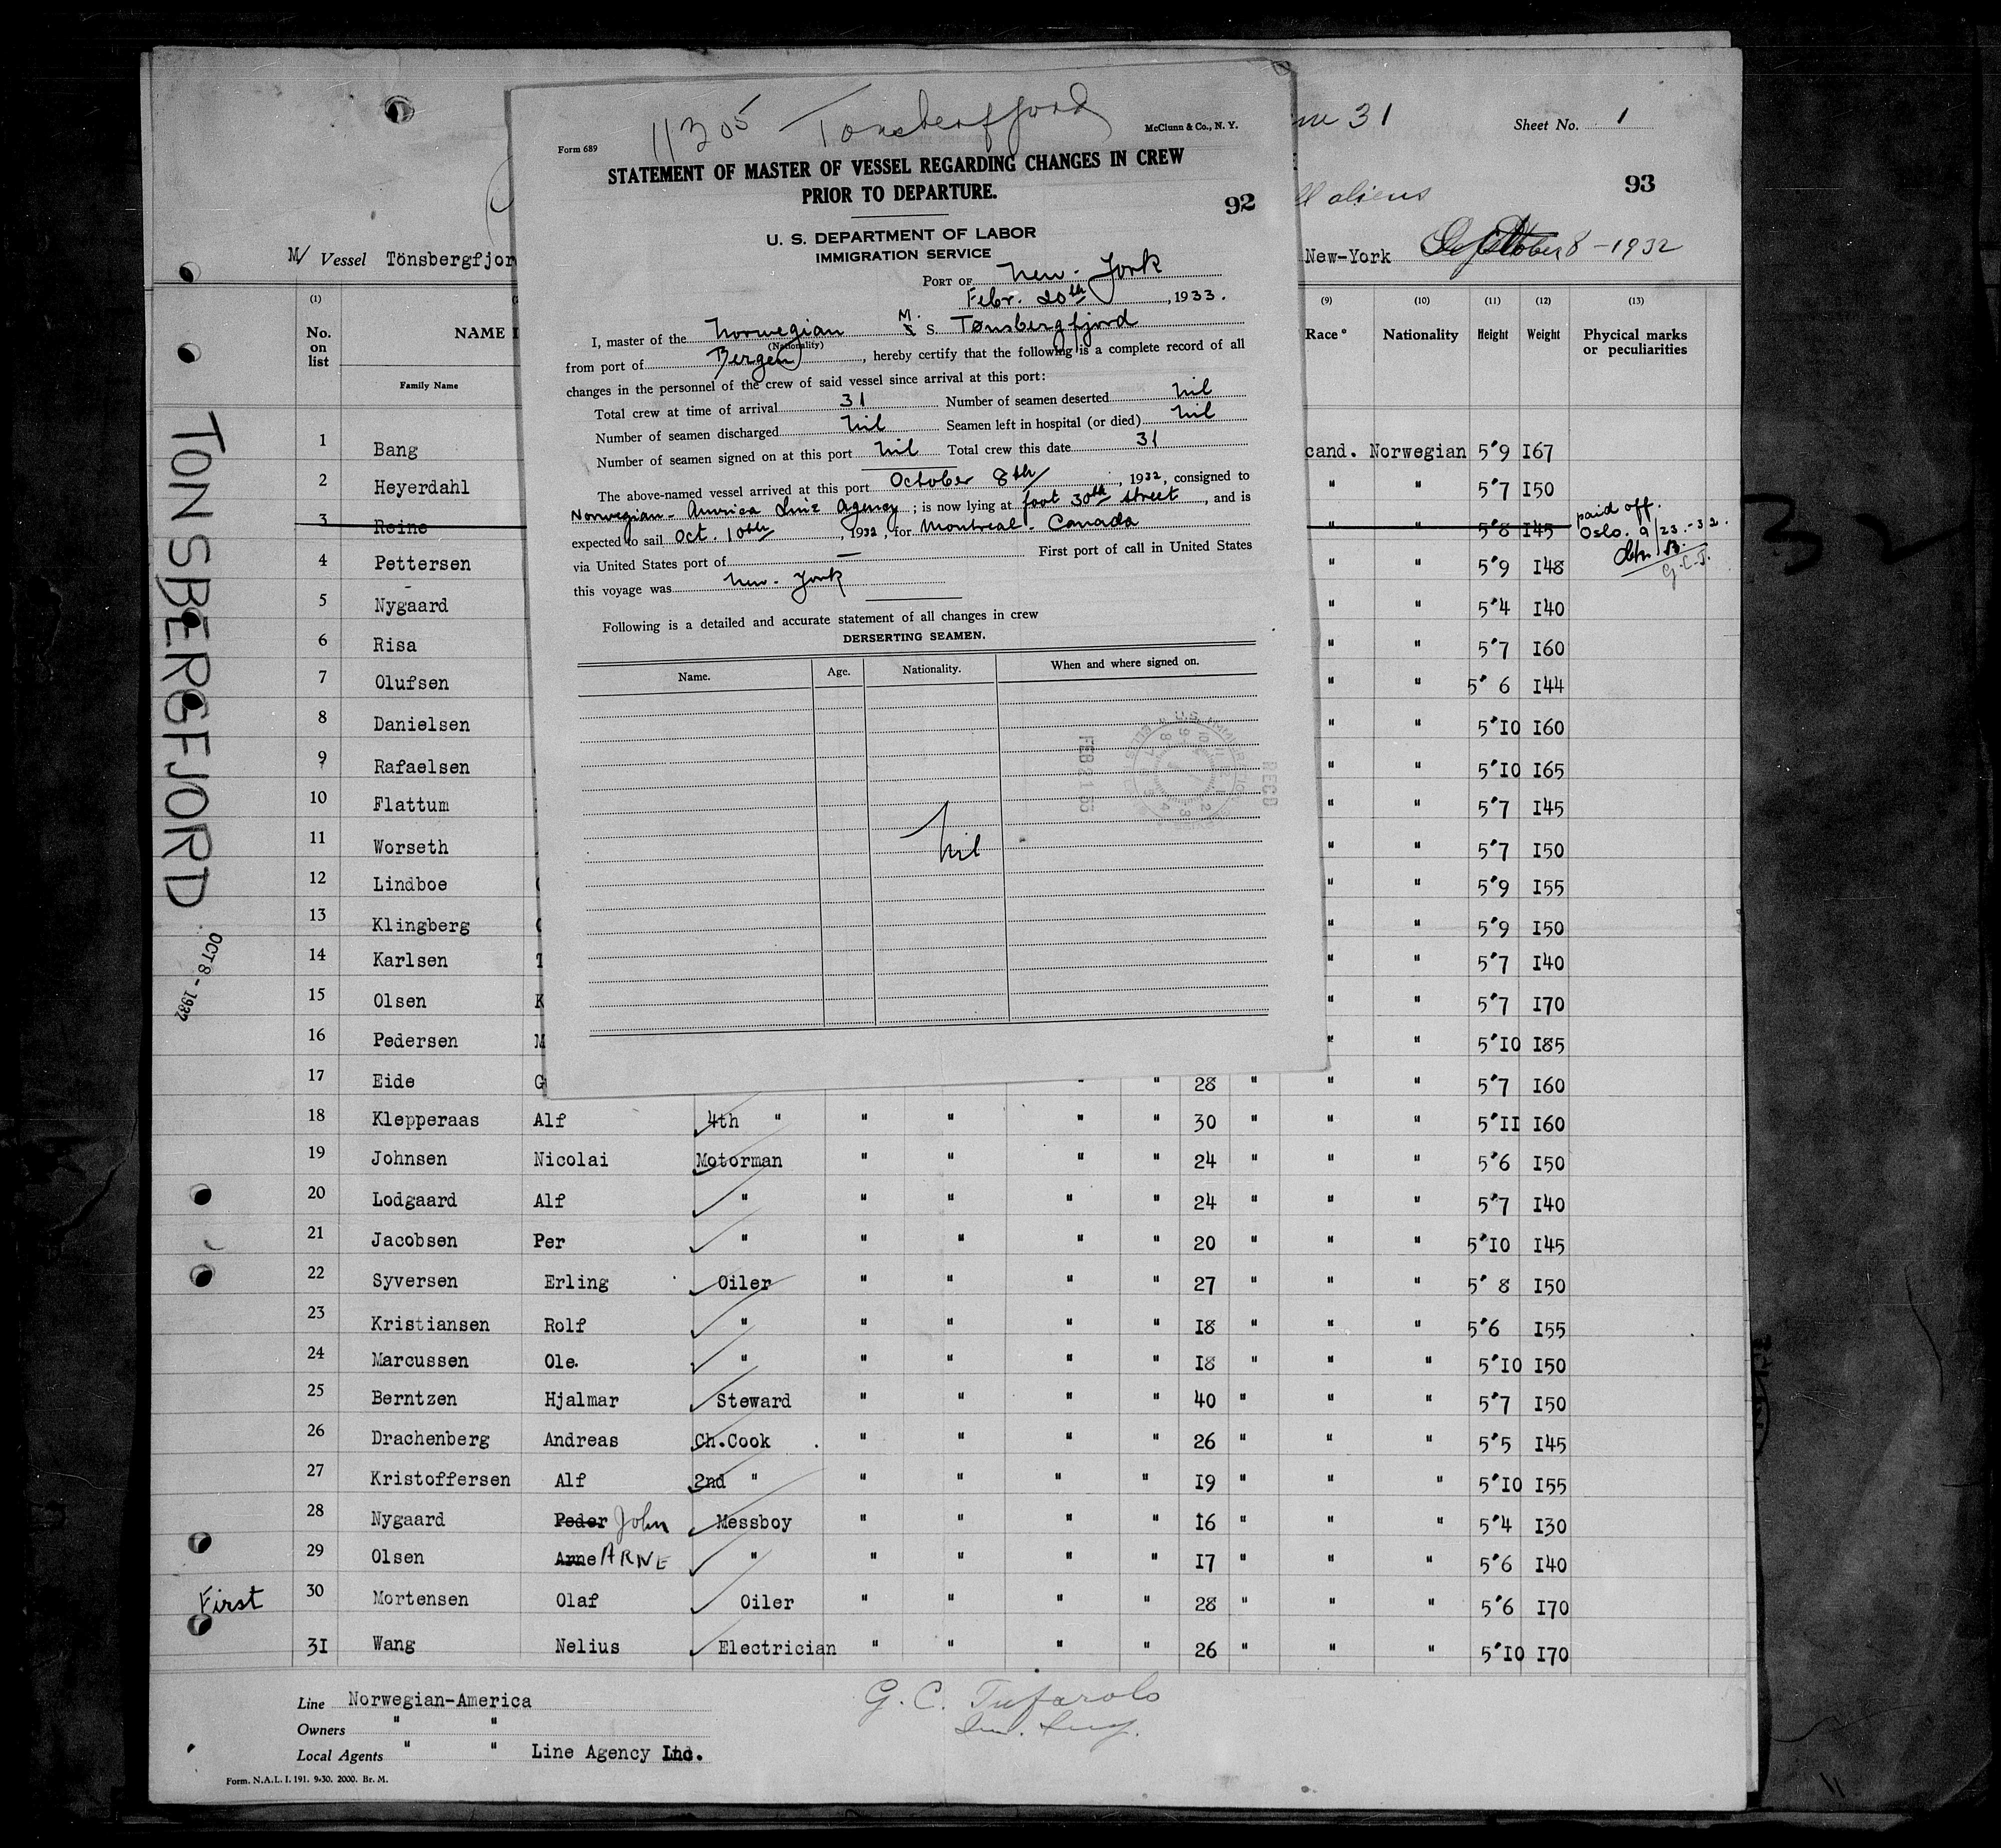 11305 Tonsberfjord
McClunn & Co., N. Y.
Form 689
STATEMENT OF MASTER OF VESSEL REGARDING CHANGES IN CREW
PRIOR TO DEPARTURE.
92
U. S. DEPARTMENT OF LABOR
IMMIGRATION SERVICE
PORT OF New-York
Febr. 20th, 1933.
I, master of the Norwegian M. S. Tønsbergfjord
(Nationality)
from port of Bergen, hereby certify that the following is a complete record of all
changes in the personnel of the crew of said vessel since arrival at this port:
Total crew at time of arrival 31 Number of seamen deserted nil
Number of seamen discharged nil Seamen left in hospital (or died) nil
Number of seamen signed on at this port nil Total crew this date 31
The above-named vessel arrived at this port October 8th, 1932, consigned to
Norwegian-America Line Agency; is now lying at foot 30th street, and is
expected to sail Oct. 10th, 1932, for Montreal-Canada
via United States port of — First port of call in United States
this voyage was New-York
Following is a detailed and accurate statement of all changes in crew
DERSERTING SEAMEN.
Name. Age. Nationality. When and where signed on.
nil
RECD
31 Sheet No. 1
aliens 93
M/ Vessel Tönsbergfjor New-York October 8-1932
(1) (9) (10) (11) (12) (13)
No. on list NAME Race* Nationality Height Weight Phycical marks or peculiarities
Family Name
1 Bang cand. Norwegian 5"9 I67
2 Heyerdahl " " 5"7 I50
3 Reine " " 5"8 I45 paid off. Oslo. 9/23-32.
G.C.T.
4 Pettersen " " 5"9 I48
5 Nygaard " " 5"4 I40
6 Risa " " 5"7 I60
7 Olufsen " " 5" 6 I44
8 Danielsen " " 5"I0 I60
9 Rafaelsen " " 5"I0 I65
10 Flattum " " 5"7 I45
11 Worseth " " 5"7 I50
12 Lindboe " " 5"9 I55
13 Klingberg " " 5"9 I50
14 Karlsen T " " 5"7 I40
15 Olsen K " " 5"7 I70
16 Pedersen M " " 5"I0 I85
17 Eide G " " 28 " " " 5"7 I60
18 Klepperaas Alf 4th " " " " " 30 " " " 5"II I60
19 Johnsen Nicolai Motorman " " " " 24 " " " 5"6 I50
20 Lodgaard Alf " " " " " 24 " " " 5"7 I40
21 Jacobsen Per " " " " " 20 " " " 5"I0 I45
22 Syversen Erling Oiler " " " " 27 " " " 5" 8 I50
23 Kristiansen Rolf " " " " " I8 " " " 5"6 I55
24 Marcussen Ole. " " " " " I8 " " " 5"I0 I50
25 Berntzen Hjalmar Steward " " " " 40 " " " 5"7 I50
26 Drachenberg Andreas Ch.Cook " " " " 26 " " " 5"5 I45
27 Kristoffersen Alf 2nd " " " " " I9 " " " 5"I0 I55
28 Nygaard Peder John Messboy " " " " I6 " " " 5"4 I30
29 Olsen Arne ARNE " " " " " I7 " " " 5"6 I40
First 30 Mortensen Olaf Oiler " " " " 28 " " " 5"6 I70
3I Wang Nelius Electrician " " " " 26 " " " 5"I0 I70
Line Norwegian-America
Owners " "
Local Agents " " Line Agency Inc.
G. C. Tufarolo
Form. N.A.L. I. 191. 9-30. 2000. Br. M.
TONSBERGFJORD
OCT 8 - 1932
32